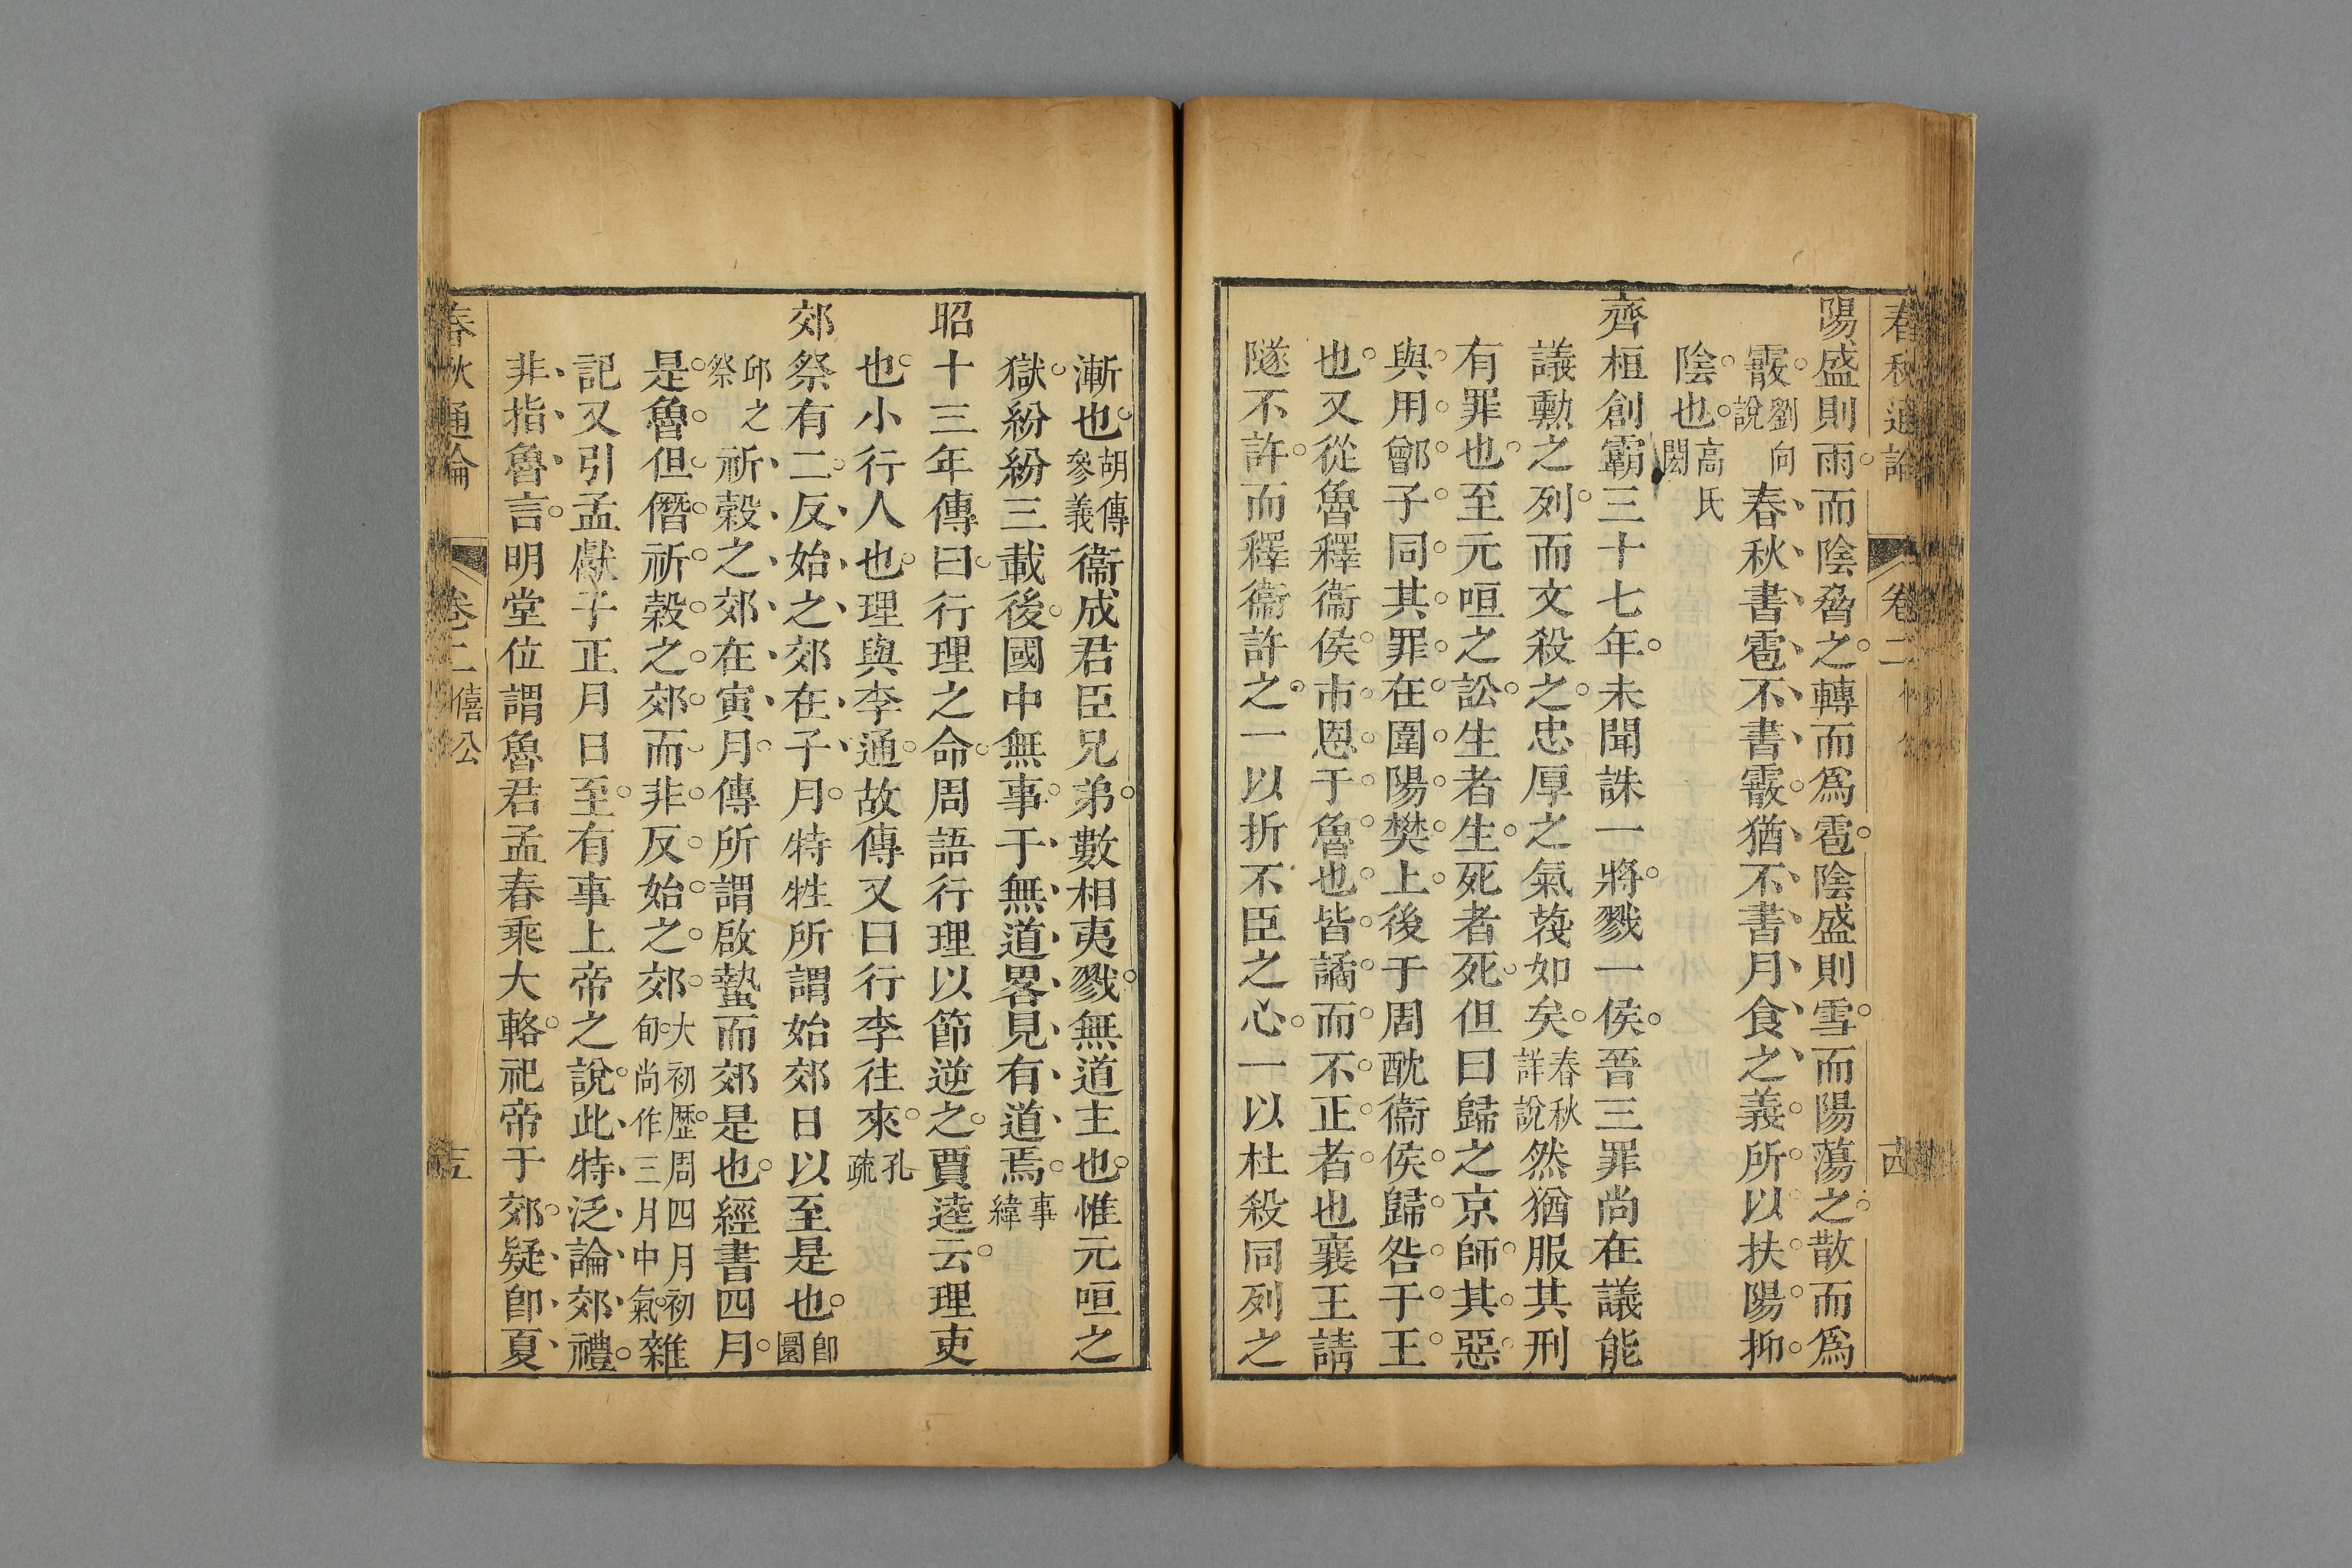 春秋通論 卷二 十四
陽盛則雨而陰脅之轉而為雹陰盛則雪而陽蕩之散而為
霰劉向說春秋書雹不書霰猶不書月食之義所以扶陽抑
陰也高氏閌
齊桓創霸三十七年未聞誅一將戮一侯晉三罪尚在議能
議勲之列而文殺之忠厚之氣薎如矣春秋詳說然猶服其刑
有罪也至元咺之訟生者生死者死但曰歸之京師其惡
與用鄫子同其罪在圍陽樊上後于周酖衞侯歸咎于王
也又從魯釋衞侯市恩于魯也皆譎而不正者也襄王請
隧不許而釋衞許之一以折不臣之心一以杜殺同列之
漸也胡傳參義衞成君臣兄弟數相夷戮無道主也惟元咺之
獄紛紛三載後國中無事于無道畧見有道焉事緯
昭十三年傳曰行理之命周語行理以節逆之賈逵云理吏
也小行人也理與李通故傳又曰行李往來孔疏
郊祭有二反始之郊在子月特牲所謂始郊日以至是也卽圜
邱之祭祈穀之郊在寅月傳所謂啟蟄而郊是也經書四月
是魯但僭祈穀之郊而非反始之郊大初歷周四月初旬尚作三月中氣雜
記又引孟獻子正月日至有事上帝之說此特泛論郊禮
非指魯言明堂位謂魯君孟春乘大輅祀帝于郊疑卽夏
春秋通論 卷二 僖公 十五